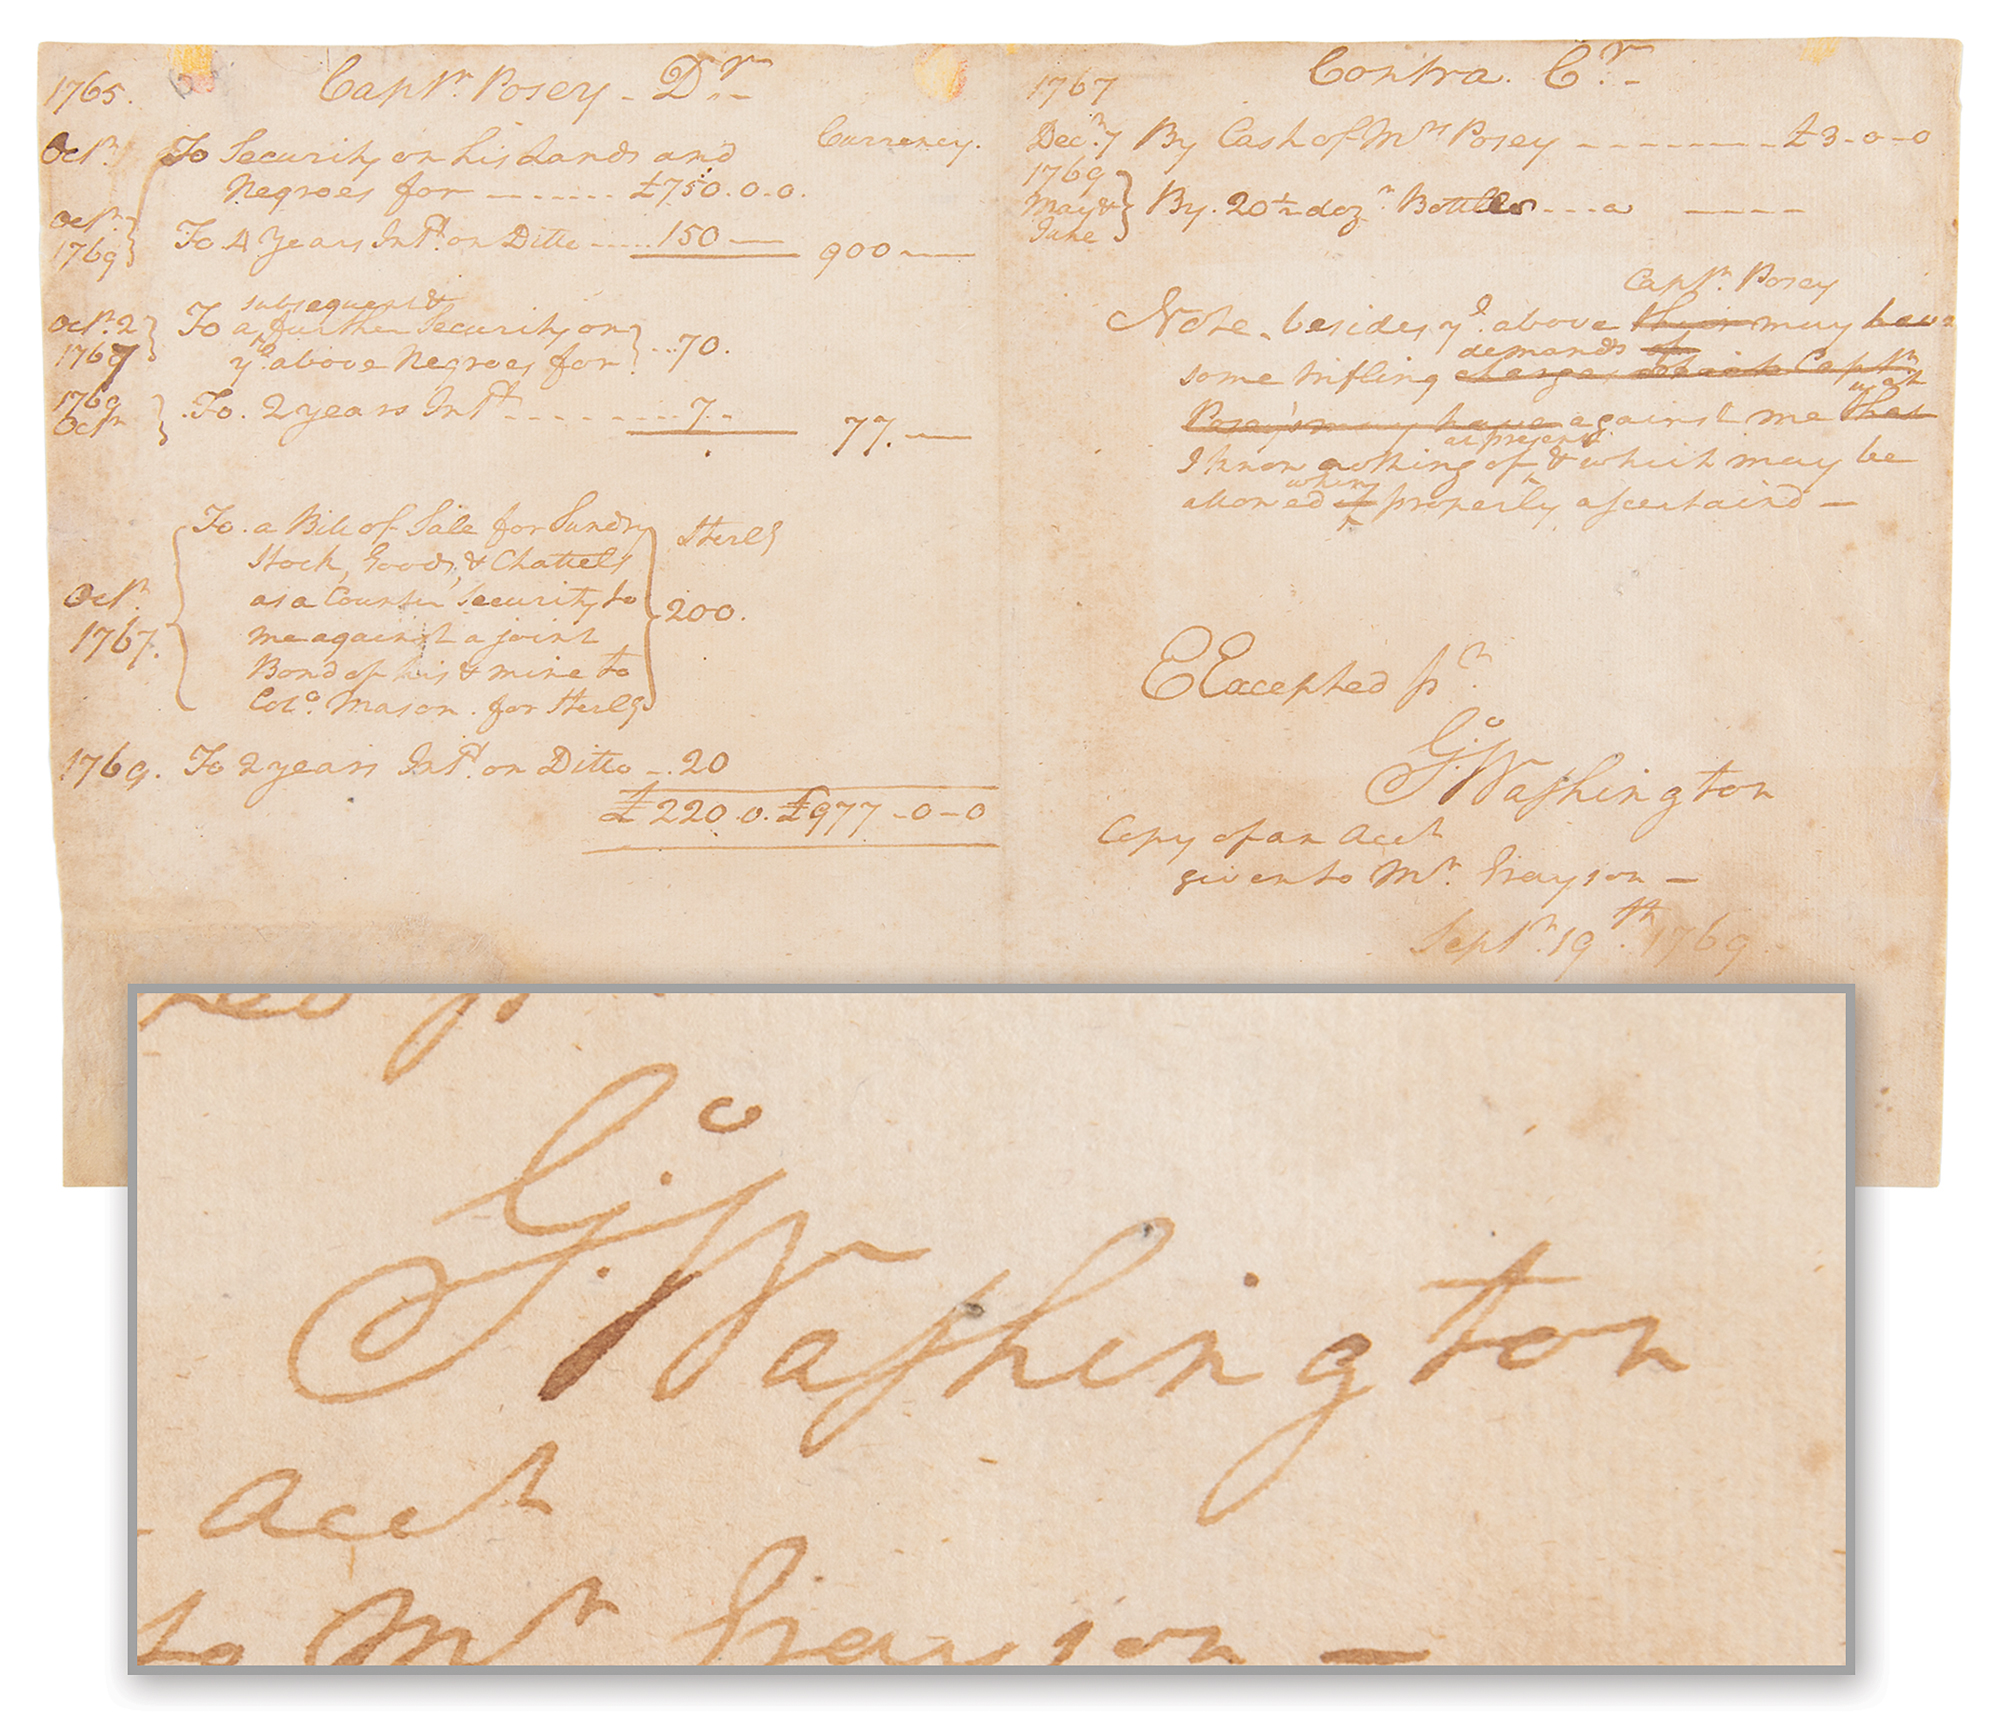 1765. Captn. Posey - Dr.-
Currency.
Octr. To Security on his Lands and
Negroes for ........ £750.0.0.
Octr. 1769 } To 4 Years Intt. on Ditto ..... 150 — 900 —
subsequent &
Octr. 2 1767 } To a further Security on
ye. above Negroes for } ...70.
1769 Octr } To. 2 years Intt. - - - - - - - 7 - 77. —
To. a Bill of Sale for Sundry Sterlg
Stock, Goods, & Chattels
Octr. as a Counter Security to 200.
1767. me against a joint
Bond of his & mine to
Colo. Mason. for Sterlg
1769. To 2 years Intt. on Ditto -. 20
£220.0. £977-0-0
1767 Contra. Cr.-
Decr. 7 By Cash of Mrs Posey - - - - - - - - £3-0-0
1769
May & June } By. 20½ doz.n Bottles - - - a - - - -
Captn. Posey
Note, besides ye. above may have
demands of
some trifling charges which Captn
Posey's may have against me that
at present
I know nothing of, & which may be
when
allowed if properly ascertaind —
E Excepted pr.
Go. Washington
Copy of an Acct
given to Mr. Grayson —
Septr. 19th. 1769
Go. Washington
Acct
to Mr Grayson —